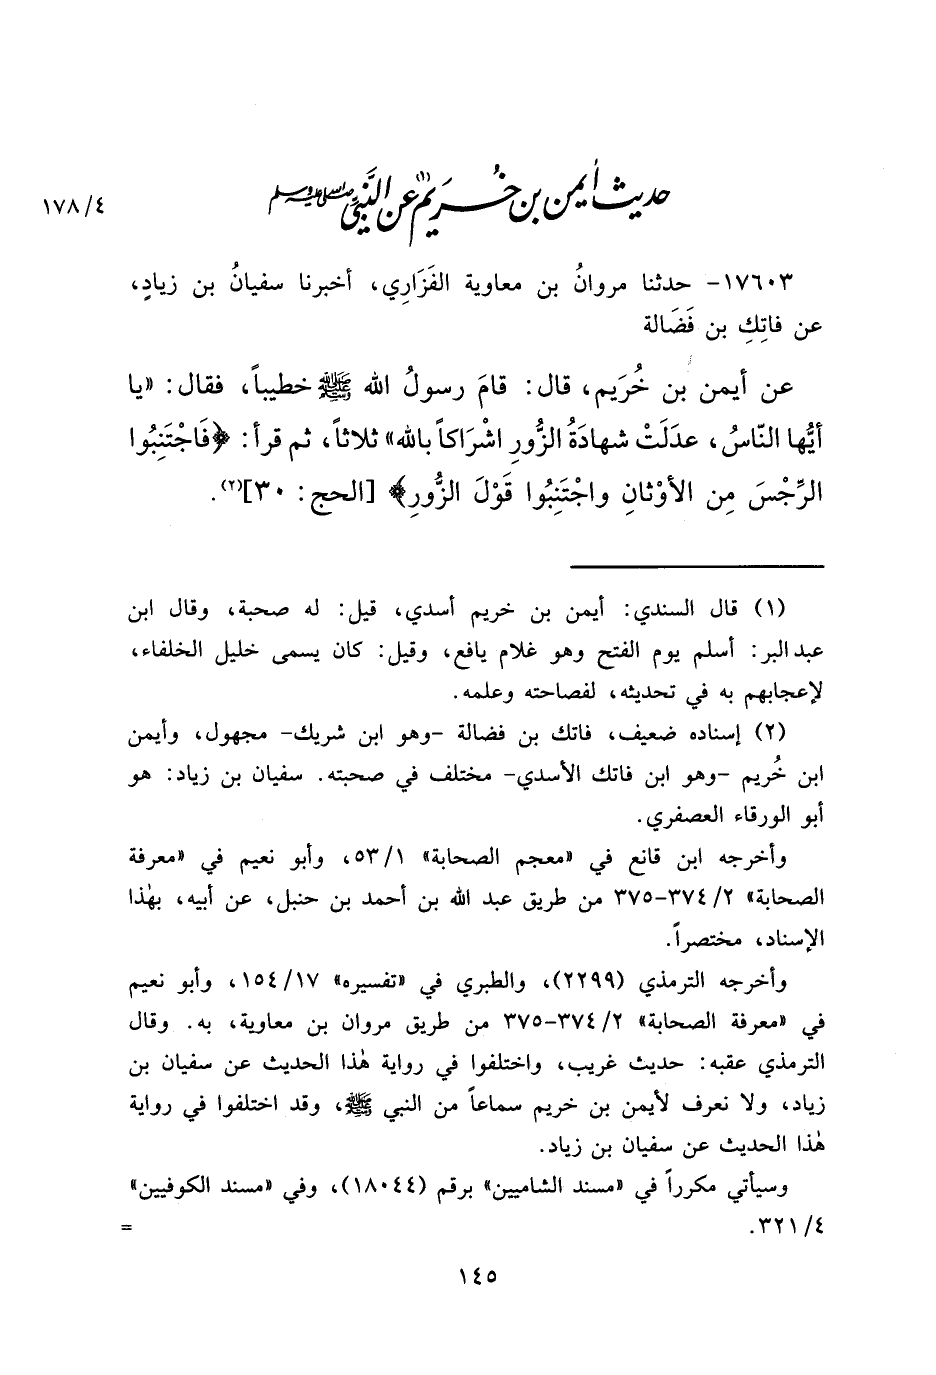 حديث أيمن بن خُريم(١) عن النَّبيِّ صلى الله عليه وسلم
١٧٨/٤
١٧٦٠٣- حدثنا مروانُ بن معاوية الفَزَارِي، أخبرنا سفيانُ بن زيادٍ،
عن فاتِكِ بن فَضَالة
عن أيمن بن خُرَيم، قال: قامَ رسولُ الله ﷺ خطيباً، فقال: «يا
أيُّها النّاسُ، عدَلَتْ شهادَةُ الزُّورِ اشْرَاكاً بالله» ثلاثاً، ثم قرأ: ﴿فَاجْتَنِبُوا
الرِّجْسَ مِن الأوْثانِ واجْتَنِبُوا قَوْلَ الزُّورِ﴾ [الحج: ٣٠](٢).
(١) قال السندي: أيمن بن خريم أسدي، قيل: له صحبة، وقال ابن
عبد البر: أسلم يوم الفتح وهو غلام يافع، وقيل: كان يسمى خليل الخلفاء،
لإعجابهم به في تحديثه، لفصاحته وعلمه.
(٢) إسناده ضعيف، فاتك بن فضالة -وهو ابن شريك- مجهول، وأيمن
ابن خُريم -وهو ابن فاتك الأسدي- مختلف في صحبته. سفيان بن زياد: هو
أبو الورقاء العصفري.
وأخرجه ابن قانع في «معجم الصحابة» ٥٣/١، وأبو نعيم في «معرفة
الصحابة» ٣٧٤/٢-٣٧٥ من طريق عبد الله بن أحمد بن حنبل، عن أبيه، بهٰذا
الإسناد، مختصراً.
وأخرجه الترمذي (٢٢٩٩)، والطبري في «تفسيره» ١٥٤/١٧، وأبو نعيم
في «معرفة الصحابة» ٣٧٤/٢-٣٧٥ من طريق مروان بن معاوية، به. وقال
الترمذي عقبه: حديث غريب، واختلفوا في رواية هٰذا الحديث عن سفيان بن
زياد، ولا نعرف لأيمن بن خريم سماعاً من النبي ﷺ، وقد اختلفوا في رواية
هٰذا الحديث عن سفيان بن زياد.
وسيأتي مكرراً في «مسند الشاميين» برقم (١٨٠٤٤)، وفي «مسند الكوفيين»
٣٢١/٤.
=
١٤٥